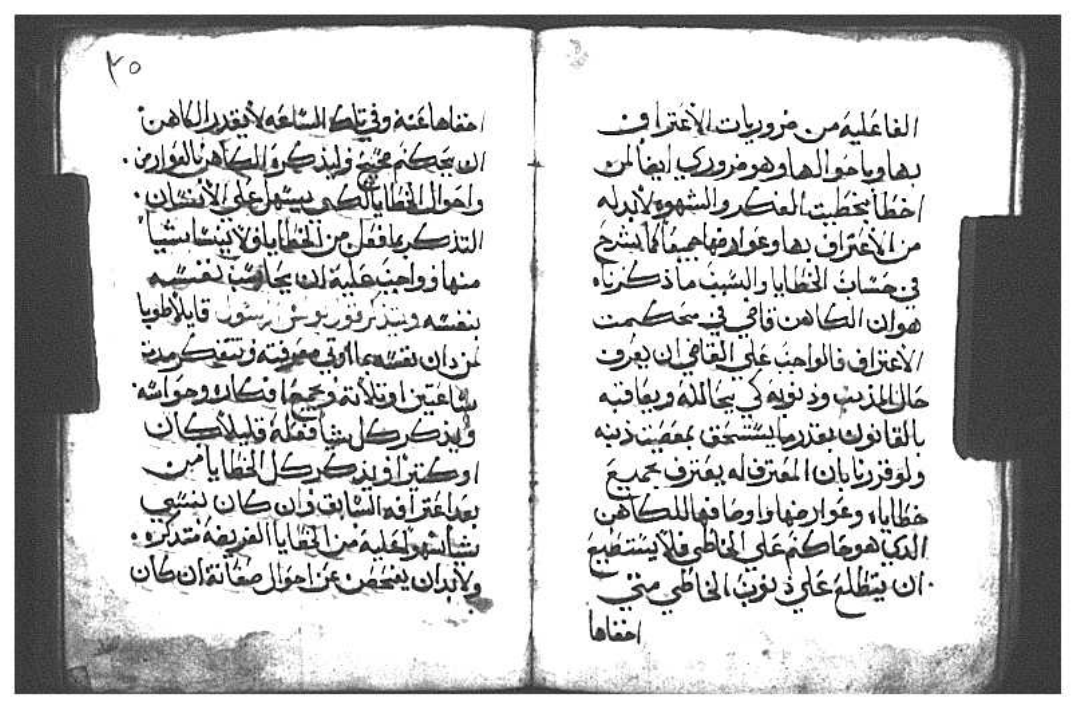 الفاعليه من ضروريات الاعتراف
بها وباحوالها وهو ضروري ايضا لمن
اخطا بخطيت الفكر والشهوه لابد له
من الاعتراف بها وعوارضها جميعا كما يشرح
في حسبات الخطايا والسبب ما ذكرناه
هو ان الكاهن قاضي في محكمت
الاعتراف فالواجب علي القاضي ان يعرف
حال المذنب وذنوبه كي يجالله ويعاقبه
بالقانون بقدر ما يستحق بمعصيت ذنبه
ولو قررنا بان المعترف له يعترف بجميع
خطاياه وعوارضها واوصافها للكاهن
الذي هو حاكم علي الخاطي فلا يستطيع
ان يتطلع علي ذنوب الخاطي متي
اخفاها
٢٥
اخفاها عنه وفي تلك الساعه لا يقدر الكاهن
ان يحكم وليذكره الكاهن بالعوارض
واحوال الخطايا لكي يسهل علي الانسان
التذكر بما فعل من الخطايا ولا ينسا شيا
منها وواجب عليه ان يحاسب نفسه
بنفسه ويتذكر قول بولس الرسول قايلا طوبا
لمن دان نفسه بما اوتي معرفته ويتفكر مدة
ساعتين او ثلاثة ويجمع افكاره وحواسه
ويذكر كل شيا فعله قليلا كان
او كتيرا ويذكر كل الخطايا من
بعد اعترافه السابق وان كان نسي
شيا سهوا لخطية من الخطايا الفريضه متذكره
ولابد ان يفحص عن احوال صفاته ان كان